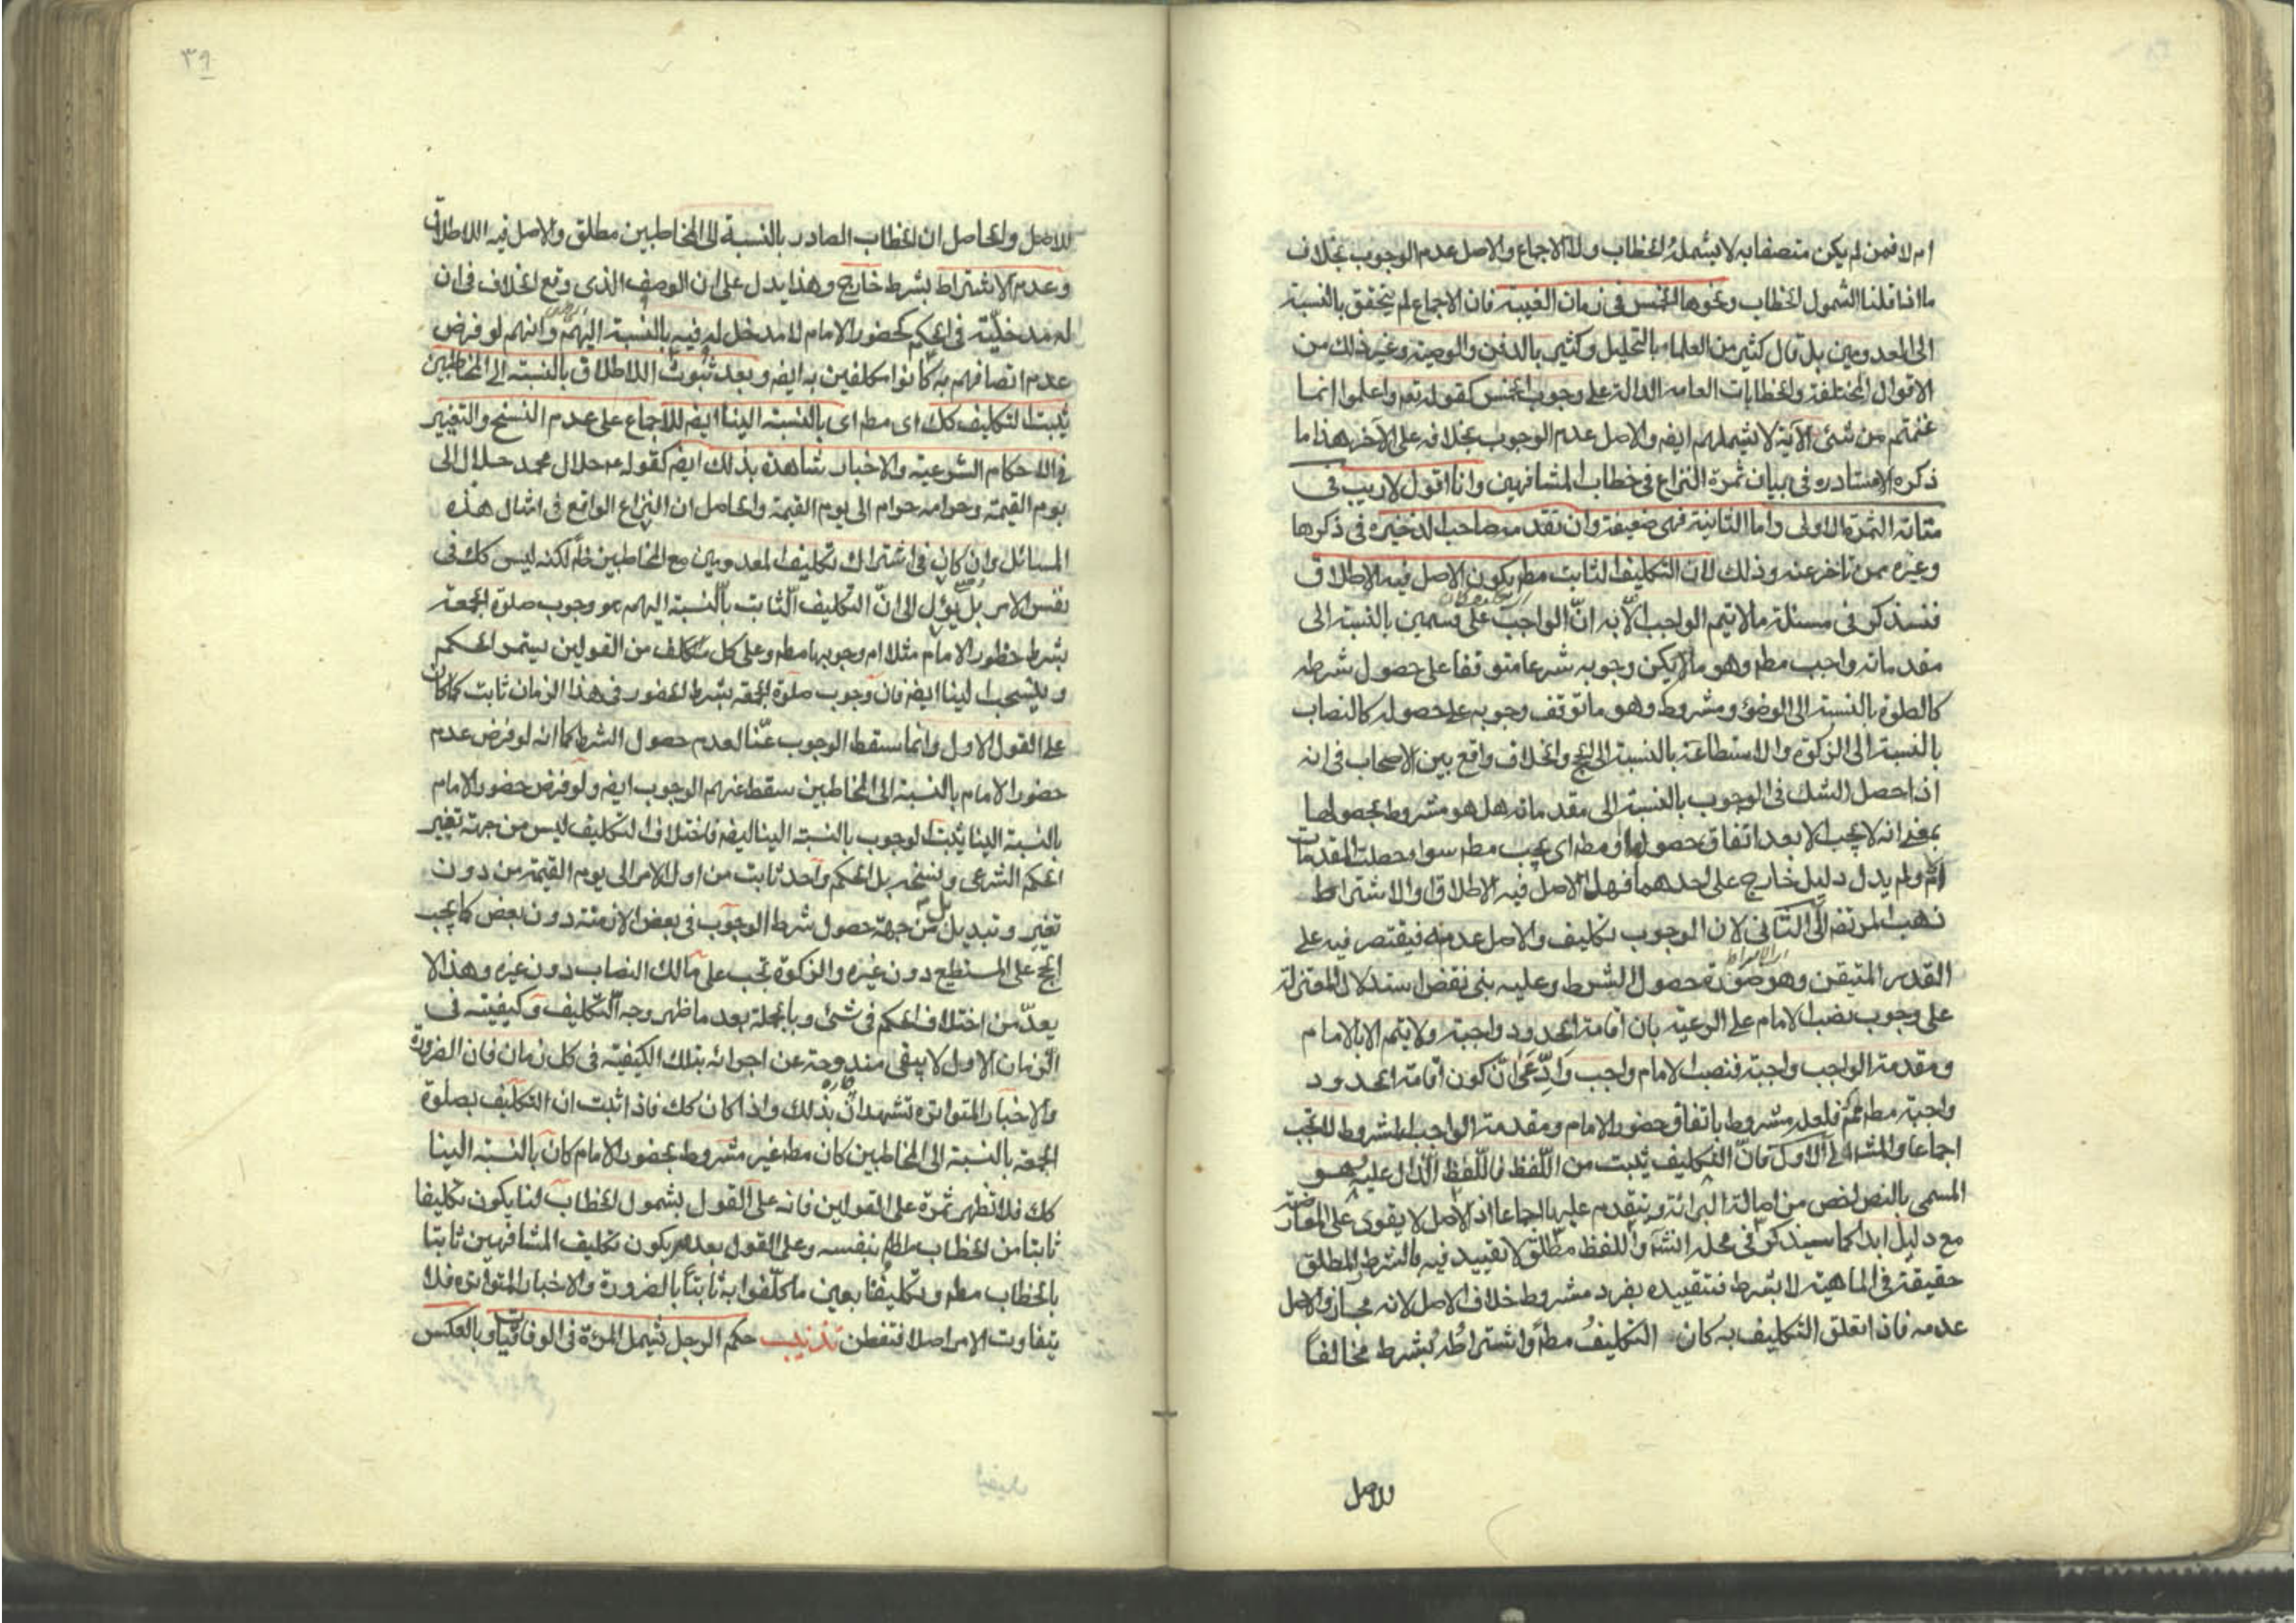 ام لا فمن لم يكن متصفا به لا يشمله الخطاب ولا الاجماع والاصل عدم الوجوب بخلاف
ما اذا قلنا الشمول الخطاب ونحوها الخمس فى زمان الغيبة فان الاجماع لم يتحقق بالنسبة
الى المعدومين بل قال كثير من العلماء بالتحليل وكثير بالدفن والوصية وغير ذلك من
الاقوال المختلفة والخطابات العامة الدالة على وجوب الخمس كقوله تعم واعلموا انما
غنمتم من شئ الآية لا يشملهم ايضه والاصل عدم الوجوب بخلافه على الآخر هذا ما
ذكره الاستاد ره فى بيان ثمرة النزاع فى خطاب المشافهين وانا اقول لا ريب فى
متانة الثمرة الاولى واما الثانية فهى ضعيفة وان تقدمه صاحب الذخيره فى ذكرها
وغيره ممن تاخر عنه وذلك لان التكليف الثابت مطم يكون الاصل فيه الاطلاق
فنسذكر فى مسئلة ما لا يتم الواجب الا به ان الواجب على قسمين بالنسبة الى
مقدماته واجب مطم وهو ما لا يكن وجوبه شرعا متوقفا على حصول شرطه
كالصلوة بالنسبة الى الوضوء ومشروط وهو ما توقف وجوبه على حصوله كالنصاب
بالنسبة الى الزكوة والاستطاعة بالنسبة الى الحج والخلاف واقع بين الاصحاب فى انه
اذا حصل الشك فى الوجوب بالنسبة الى مقدماته هل هو مشروط بحصولها
بمعنى انه لا يجب الا بعد اتفاق حصولها او مطم اى يجب مطم سواء حصلت المقدمات
ام لا ولم يدل دليل خارج على احدهما فهل الاصل فيه الاطلاق او الاشتراط
ذهب المرتضى الى الثانى لان الوجوب تكليف والاصل عدمه فيقتصر فيه على
القدر المتيقن وهو صورة حصول الشرط وعليه بنى نقض استدلال المعتزلة
على وجوب نصب الامام على الرعية بان اقامة الحدود واجبة ولا يتم الا بالامام
ومقدمة الواجب واجبة فنصب الامام واجب وادعى ان كون اقامة الحدود
واجبة مطم مم فلعله مشروط باتفاق حضور الامام ومقدمة الواجب المشروط لا تجب
اجماعا والمشهور الى الاول فان التكليف يثبت من اللفظ فاللفظ الدال عليه هو
المسمى بالنص اخص من اصالة البرائة ويتقدم عليها اجماعا اذ الاصل لا يقوى على المعارضة
مع دليل ابدا كما سيذكر فى محله انش واللفظ مطلق لا تقييد فيه فالشرط المطلق
حقيقة فى الماهية لا بشرط فتقييده بفرد مشروط خلاف الاصل لانه مجاز والاصل
عدمه فاذا تعلق التكليف به كان التكليف مطم واشتراطه بشرط مخالفا
للاصل
٣٩
للاصل والحاصل ان الخطاب الصادر بالنسبة الى المخاطبين مطلق والاصل فيه الاطلاق
وعدم الاشتراط بشرط خارج وهذا يدل على ان الوصف الذى وقع الخلاف فى ان
له مدخلية فى الحكم كحضور الامام لا مدخل له فيه بالنسبة اليهم وانهم لو فرض
عدم اتصافهم به كانوا مكلفين به ايضه وبعد ثبوت الاطلاق بالنسبة الى المخاطبين
يثبت التكليف كك اى مطم اى بالنسبة الينا ايضه للاجماع على عدم النسخ والتغيير
فى الاحكام الشرعية والاخبار شاهدة بذلك ايضه كقوله ع حلال محمد حلال الى
يوم القيمة وحرامه حرام الى يوم القيمة والحاصل ان النزاع الواقع فى امثال هذه
المسائل وان كان فى اشتراك تكليف المعدومين مع المخاطبين ظم لكنه ليس كك فى
نفس الامر بل يؤل الى ان التكليف الثابت بالنسبة اليهم هو وجوب صلوة الجمعة
بشرط حضور الامام مثلا ام وجوبها مطم وعلى كل من القولين يستمر الحكم
وينسحب الينا ايضه فان وجوب صلوة الجمعة بشرط الحضور فى هذا الزمان ثابت كما كان
على القول الاول وانما سقط الوجوب عنا لعدم حصول الشرط كما انه لو فرض عدم
حضور الامام بالنسبة الى المخاطبين سقط عنهم الوجوب ايضه ولو فرض حضور الامام
بالنسبة الينا يثبت الوجوب بالنسبة الينا ايضه فاختلاف التكليف ليس من جهة تغيير
الحكم الشرعى ونسخه بل الحكم واحد ثابت من اول الامر الى يوم القيمة من دون
تغير وتبديل بل من جهة حصول شرط الوجوب فى بعض الازمنة دون بعض كما يجب
الحج على المستطيع دون غيره والزكوة تجب على مالك النصاب دون غيره وهذا لا
يعد من اختلاف الحكم فى شئ وبالجملة بعد ما ظهر وجه التكليف وكيفيته فى
الزمان الاول لا يبقى مندوحة عن اجرائه بتلك الكيفية فى كل زمان فان الضرورة
والاخبار المتواترة تشهدان بذلك واذا كان كك فاذا ثبت ان التكليف بصلوة
الجمعة بالنسبة الى المخاطبين كان مطم غير مشروط بحضور الامام كان بالنسبة الينا
كك فلا تظهر ثمرة على القولين فانه على القول بشمول الخطاب لنا يكون تكليفا
ثابتا من الخطاب مطم بنفسه وعلى القول بعدمه يكون تكليف المشافهين ثابتا
بالخطاب مطم وتكليفنا بعين ما كلفوا به ثابتا بالضرورة والاخبار المتواترة فلا
يتفاوت الامر اصلا فتفطن تذنيب حكم الرجل يشمل المرئة فى الوفاقيات وبالعكس